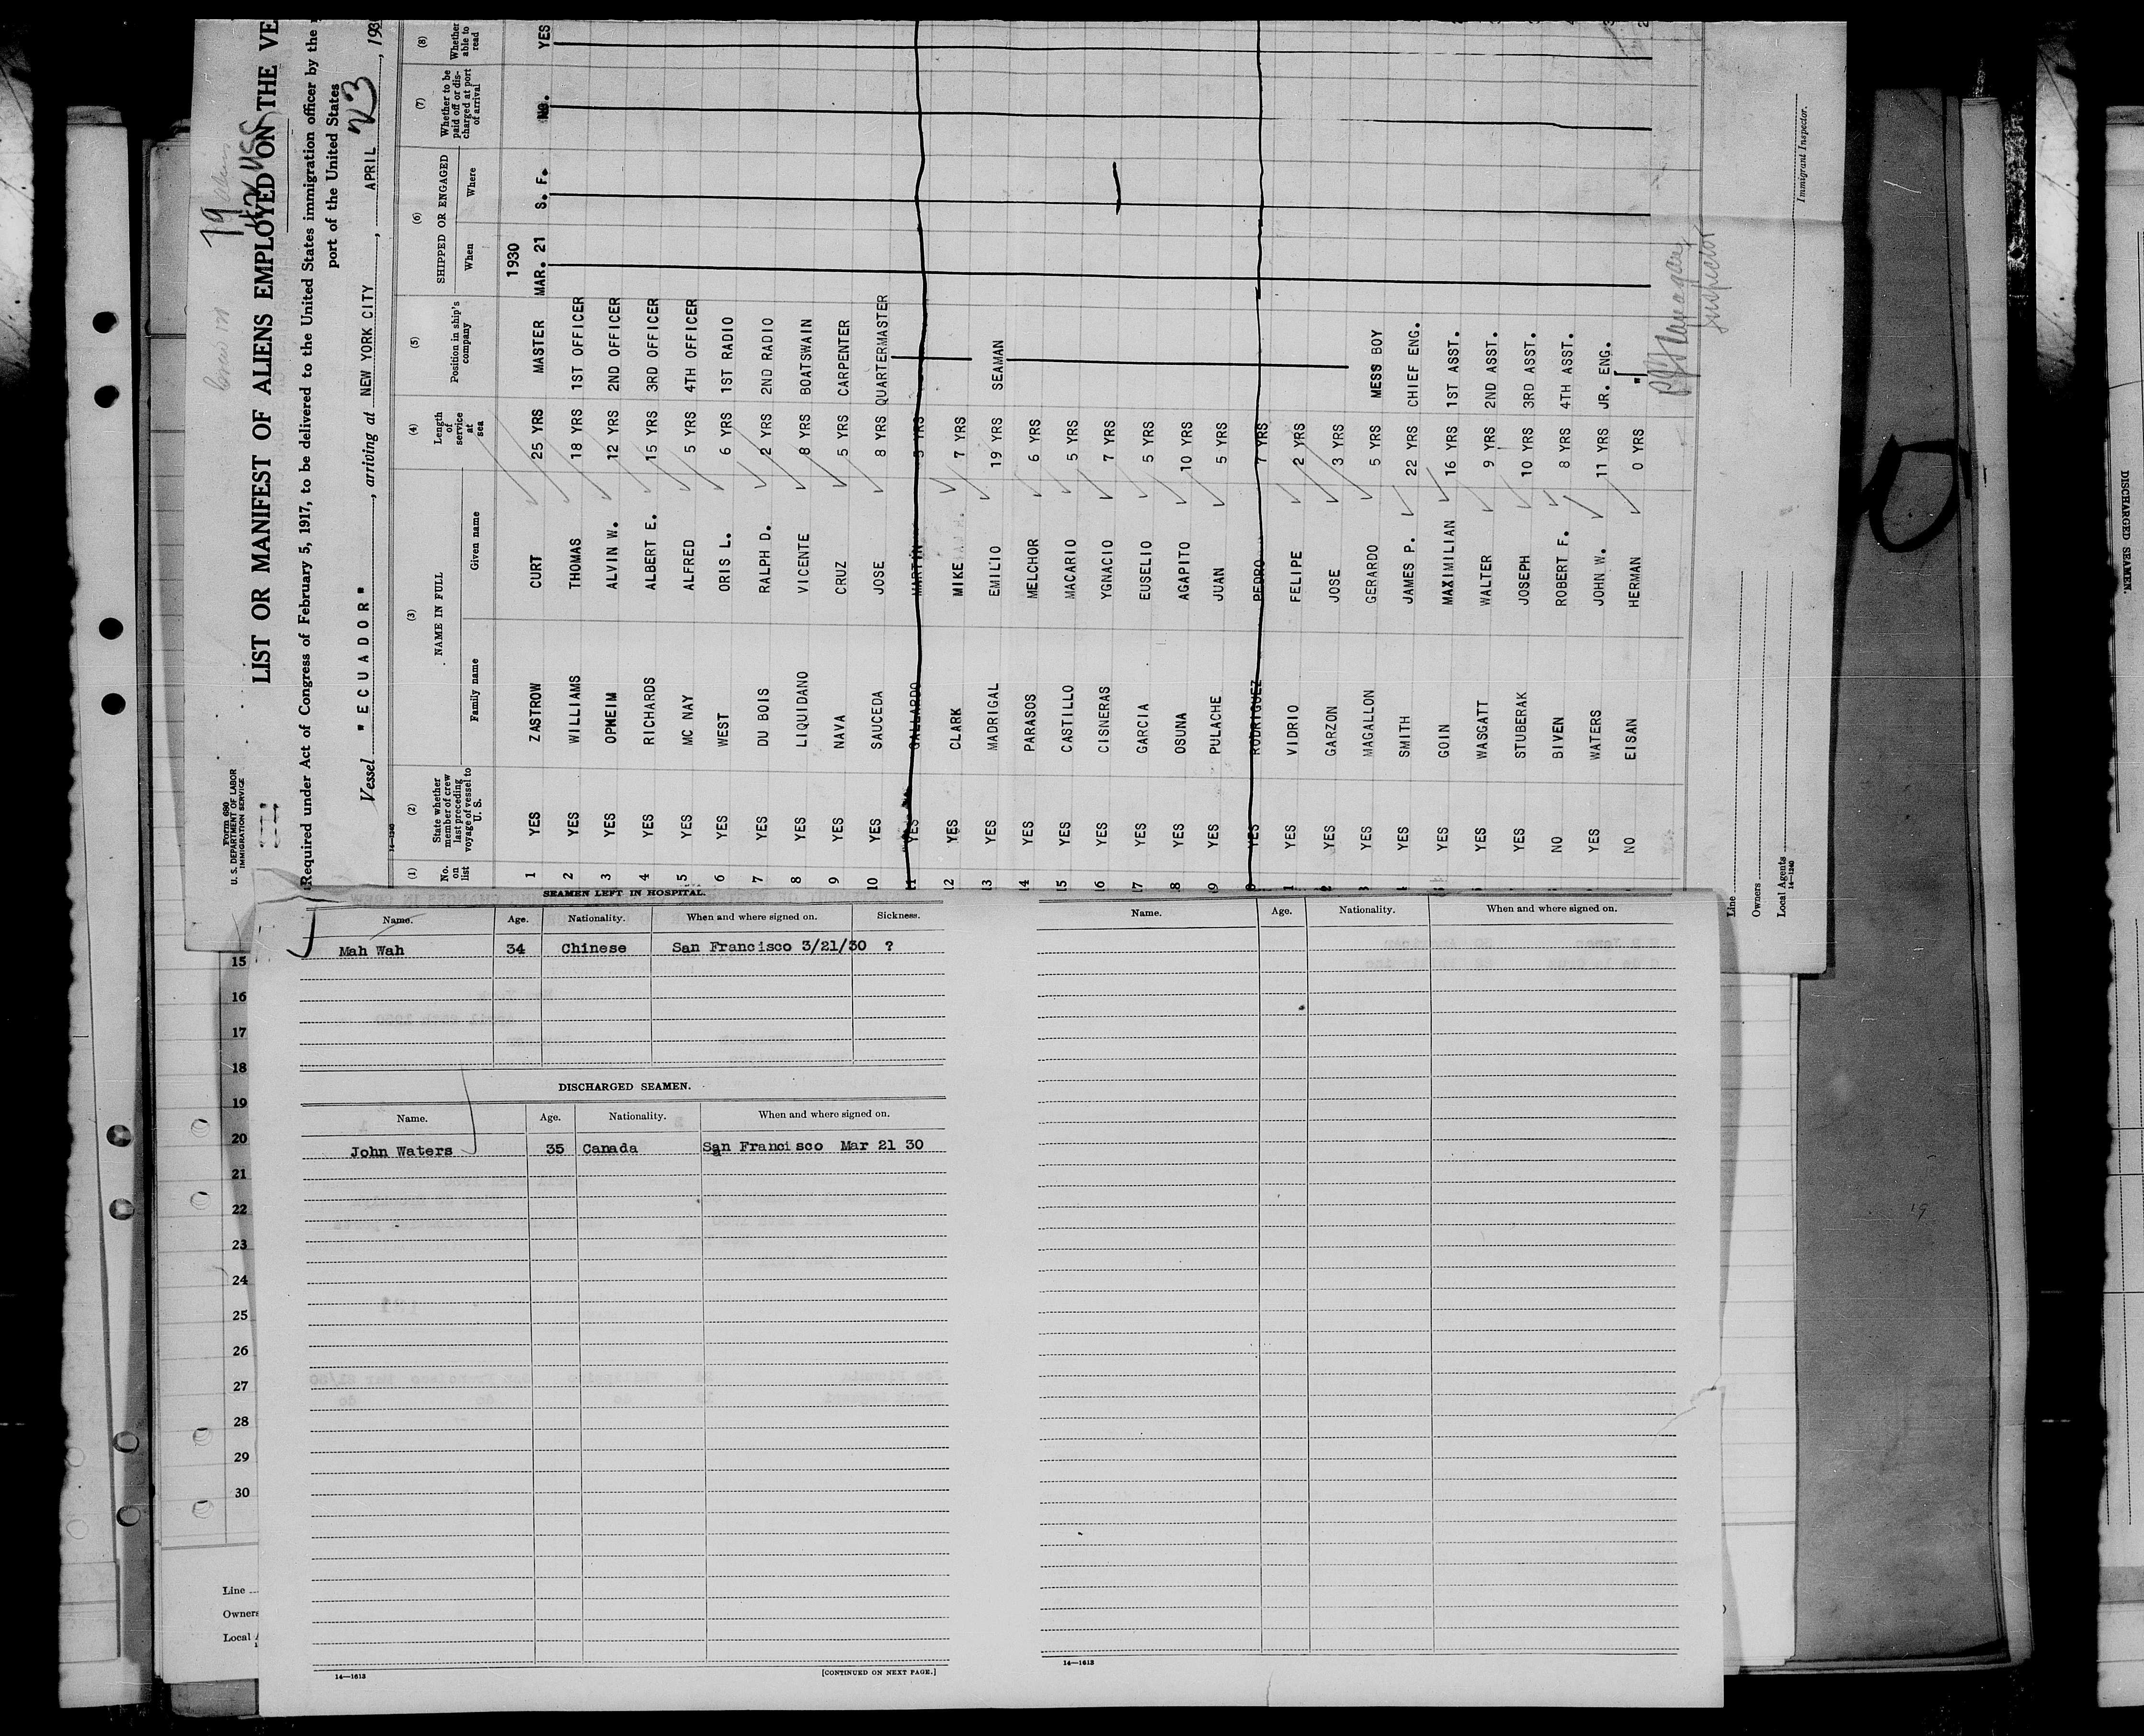 Form 680
U. S. DEPARTMENT OF LABOR
IMMIGRATION SERVICE
LIST OR MANIFEST OF ALIENS EMPLOYED ON THE VE
Required under Act of Congress of February 5, 1917, to be delivered to the United States immigration officer by the
port of the United States
Vessel "ECUADOR", arriving at NEW YORK CITY, APRIL 23, 193
14-1240
(1) (2) (3) (4) (5) (6) (7) (8)
No. on list
State whether member of crew last preceding voyage of vessel to U. S.
NAME IN FULL
Family name Given name
Length of service at sea
Position in ship's company
SHIPPED OR ENGAGED
When Where
Whether to be paid off or discharged at port of arrival
Whether able to read
1930
1 YES ZASTROW CURT 25 YRS MASTER MAR. 21 S. F. NO. YES
2 YES WILLIAMS THOMAS 18 YRS 1ST OFFICER
3 YES OPMEIM ALVIN W. 12 YRS 2ND OFFICER
4 YES RICHARDS ALBERT E. 15 YRS 3RD OFFICER
5 YES MC NAY ALFRED 5 YRS 4TH OFFICER
6 YES WEST ORIS L. 6 YRS 1ST RADIO
7 YES DU BOIS RALPH D. 2 YRS 2ND RADIO
8 YES LIQUIDANO VICENTE 8 YRS BOATSWAIN
9 YES NAVA CRUZ 5 YRS CARPENTER
10 YES SAUCEDA JOSE 8 YRS QUARTERMASTER
11 YES GALLARDO MARTIN 5 YRS
12 YES CLARK MIKE 7 YRS
13 YES MADRIGAL EMILIO 19 YRS SEAMAN
14 YES PARASOS MELCHOR 6 YRS
15 YES CASTILLO MACARIO 5 YRS
16 YES CISNERAS YGNACIO 7 YRS
17 YES GARCIA EUSELIO 5 YRS
8 YES OSUNA AGAPITO 10 YRS
9 YES PULACHE JUAN 5 YRS
0 YES RODRIGUEZ PEDRO 7 YRS
1 YES VIDRIO FELIPE 2 YRS
2 YES GARZON JOSE 3 YRS
3 YES MAGALLON GERARDO 5 YRS MESS BOY
YES SMITH JAMES P. 22 YRS CHIEF ENG.
YES GOIN MAXIMILIAN 16 YRS 1ST ASST.
YES WASGATT WALTER 9 YRS 2ND ASST.
YES STUBERAK JOSEPH 10 YRS 3RD ASST.
NO BIVEN ROBERT F. 8 YRS 4TH ASST.
YES WATERS JOHN W. 11 YRS JR. ENG.
NO EISAN HERMAN 0 YRS "
Inspector
Immigrant Inspector.
Line
Owners
Local Agents
14-1240
SEAMEN LEFT IN HOSPITAL.
Name. Age. Nationality. When and where signed on. Sickness.
Mah Wah 34 Chinese San Francisco 3/21/30 ?
DISCHARGED SEAMEN.
Name. Age. Nationality. When and where signed on.
John Waters 35 Canada San Francisco Mar 21 30
14—1613 [CONTINUED ON NEXT PAGE.]
Name. Age. Nationality. When and where signed on.
14—1613
15
16
17
18
19
20
21
22
23
24
25
26
27
28
29
30
Line
Owners
Local A
DISCHARGED SEAMEN.